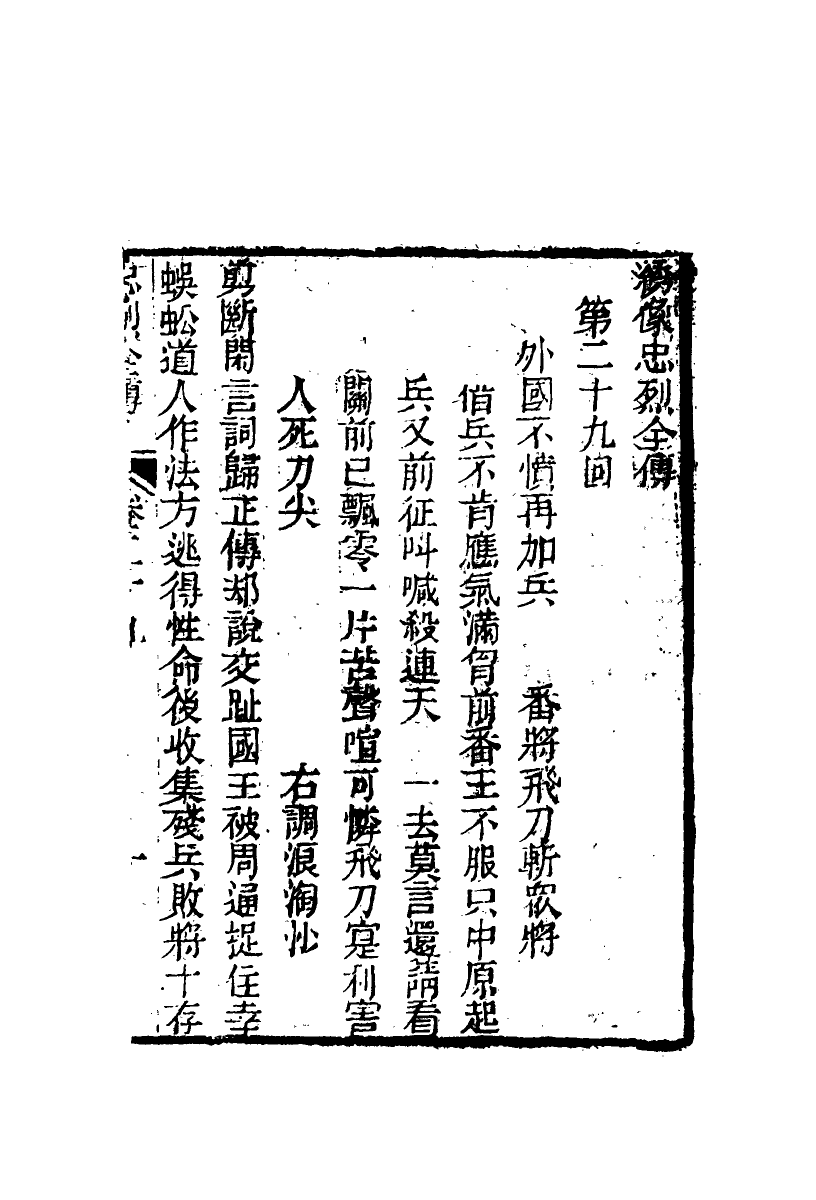 綉像忠烈全傳
第二十九回
外國不憤再加兵　番將飛刀斬眾將
借兵不肯應氣滿胷前番王不服只中原起
兵又前征呌喊殺連天　一去莫言還請看
關前已飄零一片苦聲喧可憐飛刀寔利害
人死刀尖　右調浪淘沙
剪斷閑言詞歸正傳却說交趾國王被周通捉住幸
蜈蚣道人作法方逃得性命後收集殘兵敗將十存
忠烈全傳　卷二十九　一